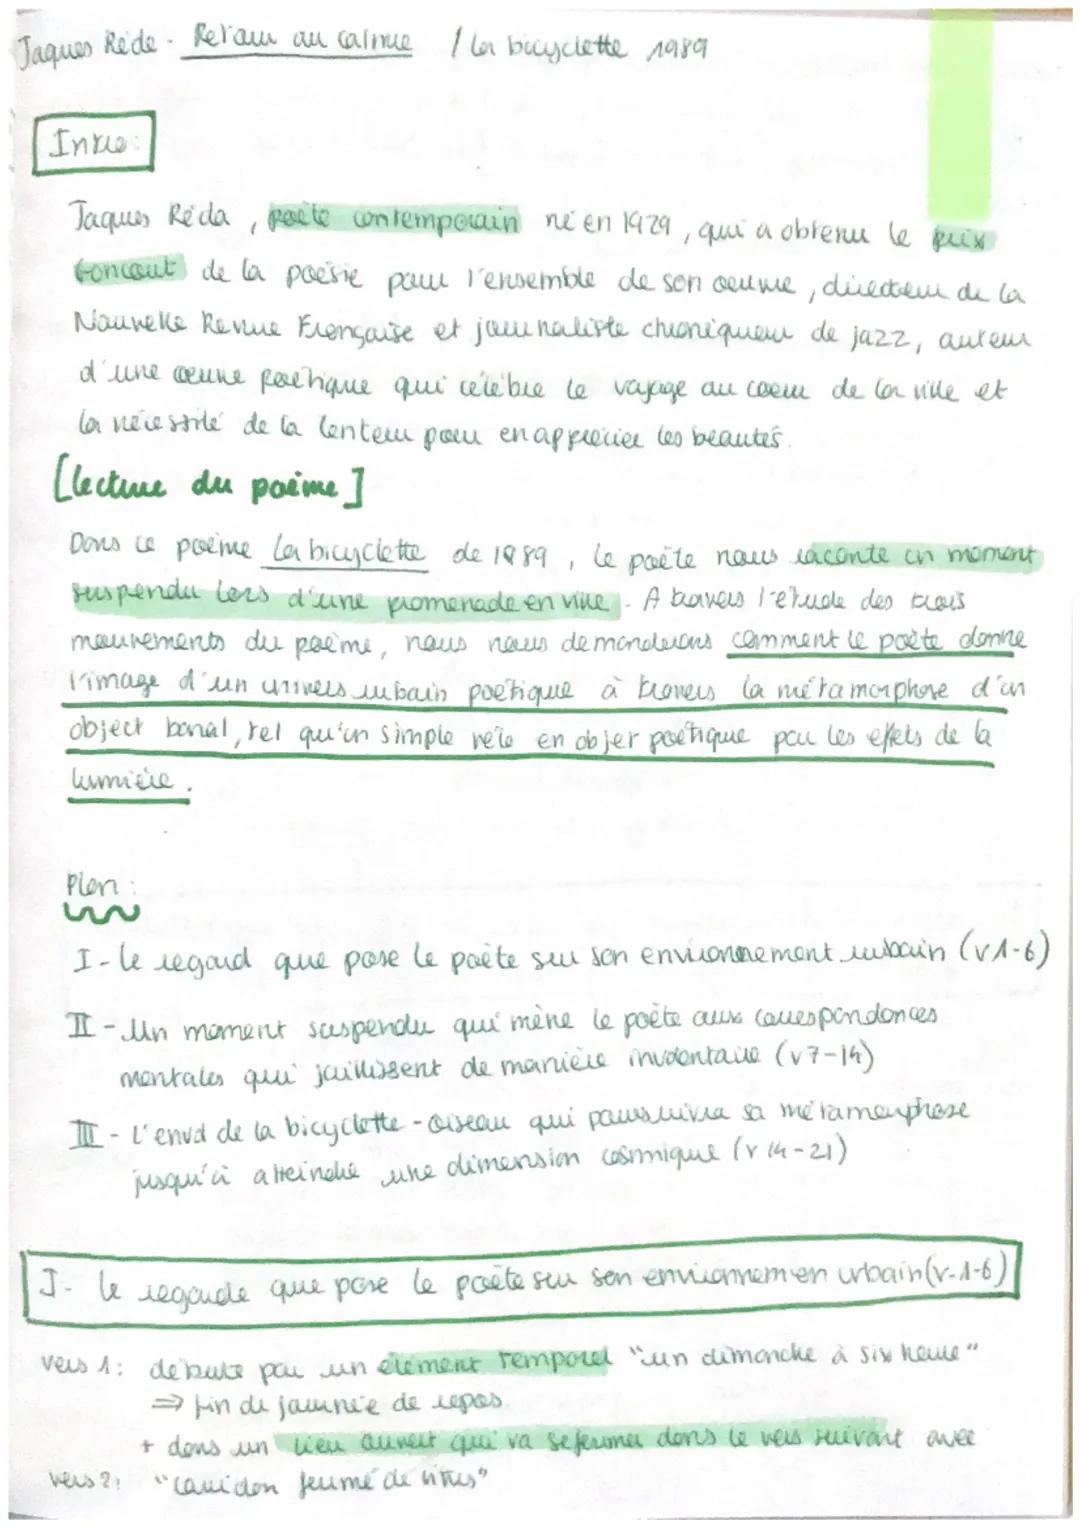 Jaques Réda - Retour au calme / La bicyclette 1989
Intro:
Jaques Réda, poète contemporain né en 1929, qui a obtenu le prix
Goncourt de la poésie pour l'ensemble de son oeuvre, directeur de la
Nouvelle Revue Française et journaliste chroniqueur de jazz, auteur
d'une œuvre poétique qui célèbre le voyage au coeur de la ville et
la nécessité de la lenteur pour en apprécier les beautés.
[lecture du poème]
Dans ce poème La bicyclette de 1989, le poète nous raconte un moment
suspendu lors d'une promenade en ville. A travers l'étude des trois
mouvements du poème, nous nous demanderons comment le poète donne
l'image d'un univers urbain poétique à travers la métamorphose d'un
object banal, tel qu'un simple vélo en objet poétique par les effets de la
lumière.
Plan:
I - le regard que pose le poète sur son environnement urbain (v1-6)
II - Un moment suspendu qui mène le poète aux correspondances
mentales qui jaillissent de manière involontaire (v7-14)
III - L'envol de la bicyclette - oiseau qui poursuivra sa métamorphose
jusqu'à atteindre une dimension cosmique (v14-21)
I - le regarde que pose le poète sur son environnemen urbain (v-1-6)
vers 1: débute par un élément temporel "un dimanche à six heure"
⇒ fin de journée de repos
+ dans un lieu ouvert qui va se fermer dans le vers suivant avec
vers 2: "couidon fermé de vitres"